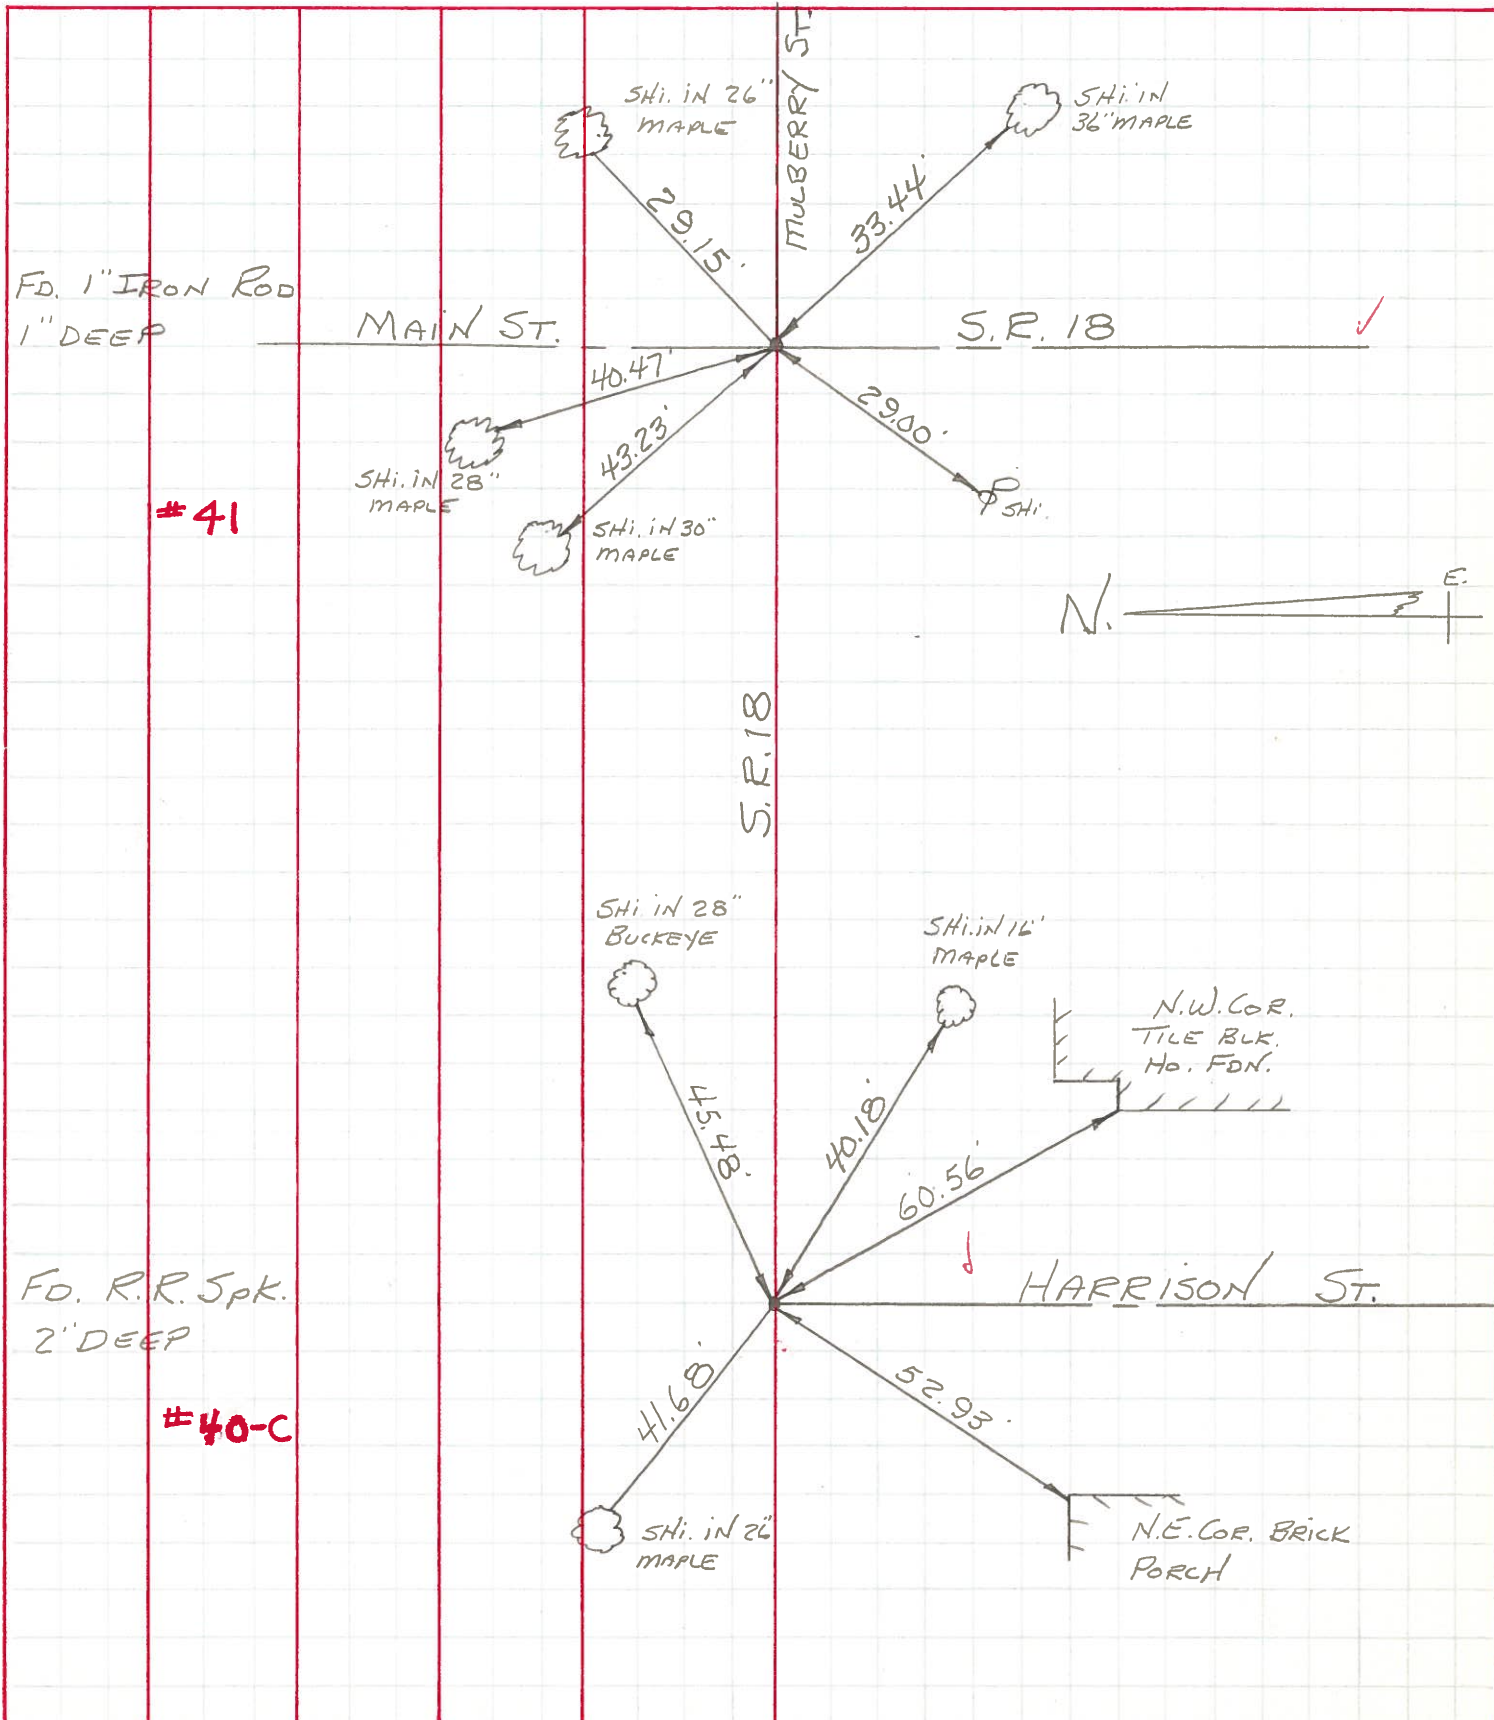 MULBERRY ST.
SHi. iN 26"
MAPLE
SHi. iN
36" MAPLE
29.15'
33.44'
FD. 1" IRON ROD
1" DEEP
MAiN ST.
S.R. 18
40.47'
43.23'
29.00'
SHi. iN 28"
MAPLE
SHi. iN 30"
MAPLE
P
SHi.
#41
N.
E.
S.R. 18
SHi iN 28"
BUCKEYE
SHi. iN 16"
MAPLE
N.W. COR.
TILE BLK.
HO. FDN.
45.48'
40.18'
60.56'
FD. R.R. SpK.
2" DEEP
HARRiSON ST.
#40-C
41.68'
52.93'
SHi. iN 26"
MAPLE
N.E. COR. BRiCK
PORCH